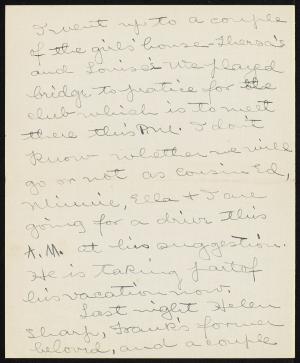 I went up to a couple
of the girls' house - Theresa's
and Louise's. We played
bridge to practice for the
club which is to meet
there this P.M. I don't
know whether we will
go or not as cousin Ed,
Minnie, Ella & I are
going for a drive this
A.M. at his suggestion.
He is taking part of
his vacation now.
Last night Helen
Sharp, Frank's former
beloved, and a couple